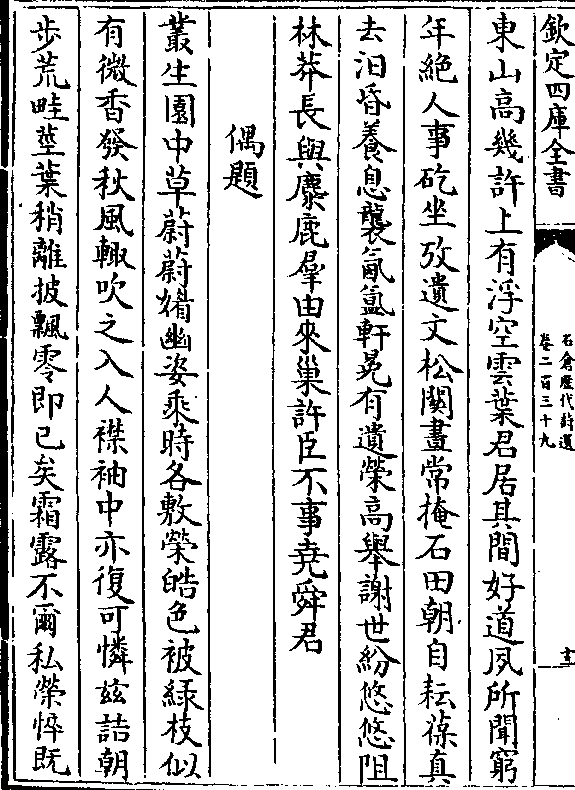 欽定四庫全書
石倉歷代詩選
卷二百三十九
十二
東山高幾許上有浮空雲葉君居其間好道夙所聞窮
年絕人事矻坐攷遺文松關晝常掩石田朝自耘葆真
去汨昏養息襲氤氳軒冕有遺榮高舉謝世紛悠悠阻
林莽長與麋鹿羣由來巢許臣不事堯舜君
偶題
叢生園中草蔚蔚媚幽姿乘時各敷榮皓色被綠枝似
有微香發秋風輙吹之入人襟袖中亦復可憐兹詰朝
步荒畦莖葉稍離披飄零即已矣霜露不爾私榮悴既